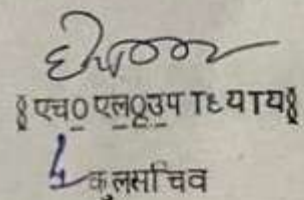 {एच0 एल0उपाध्याय}
कुलसचिव